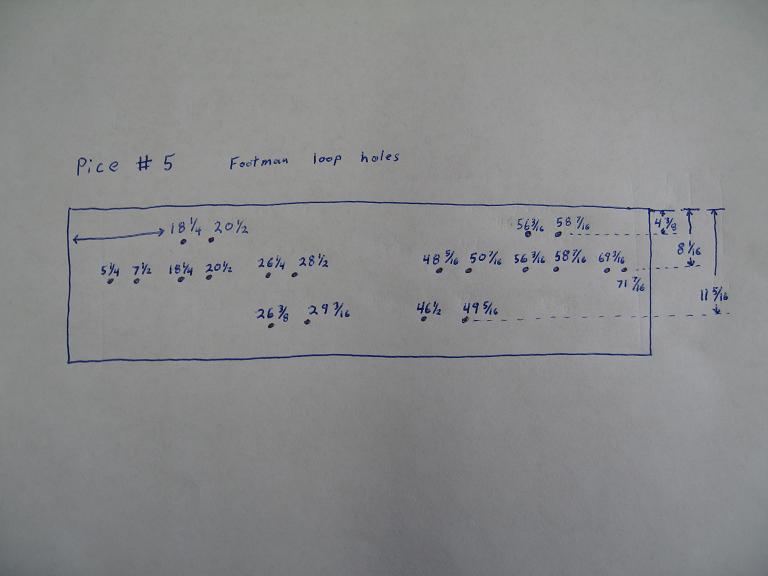 Pice # 5 Footman loop holes
18 1/4 20 1/2 56 3/16 58 7/16 4 3/8
8 1/16
5 1/4 7 1/2 18 1/4 20 1/2 26 1/4 28 1/2 48 5/16 50 7/16 56 3/16 58 7/16 69 3/16
71 7/16
11 5/16
26 3/8 29 3/16 46 1/2 49 5/16